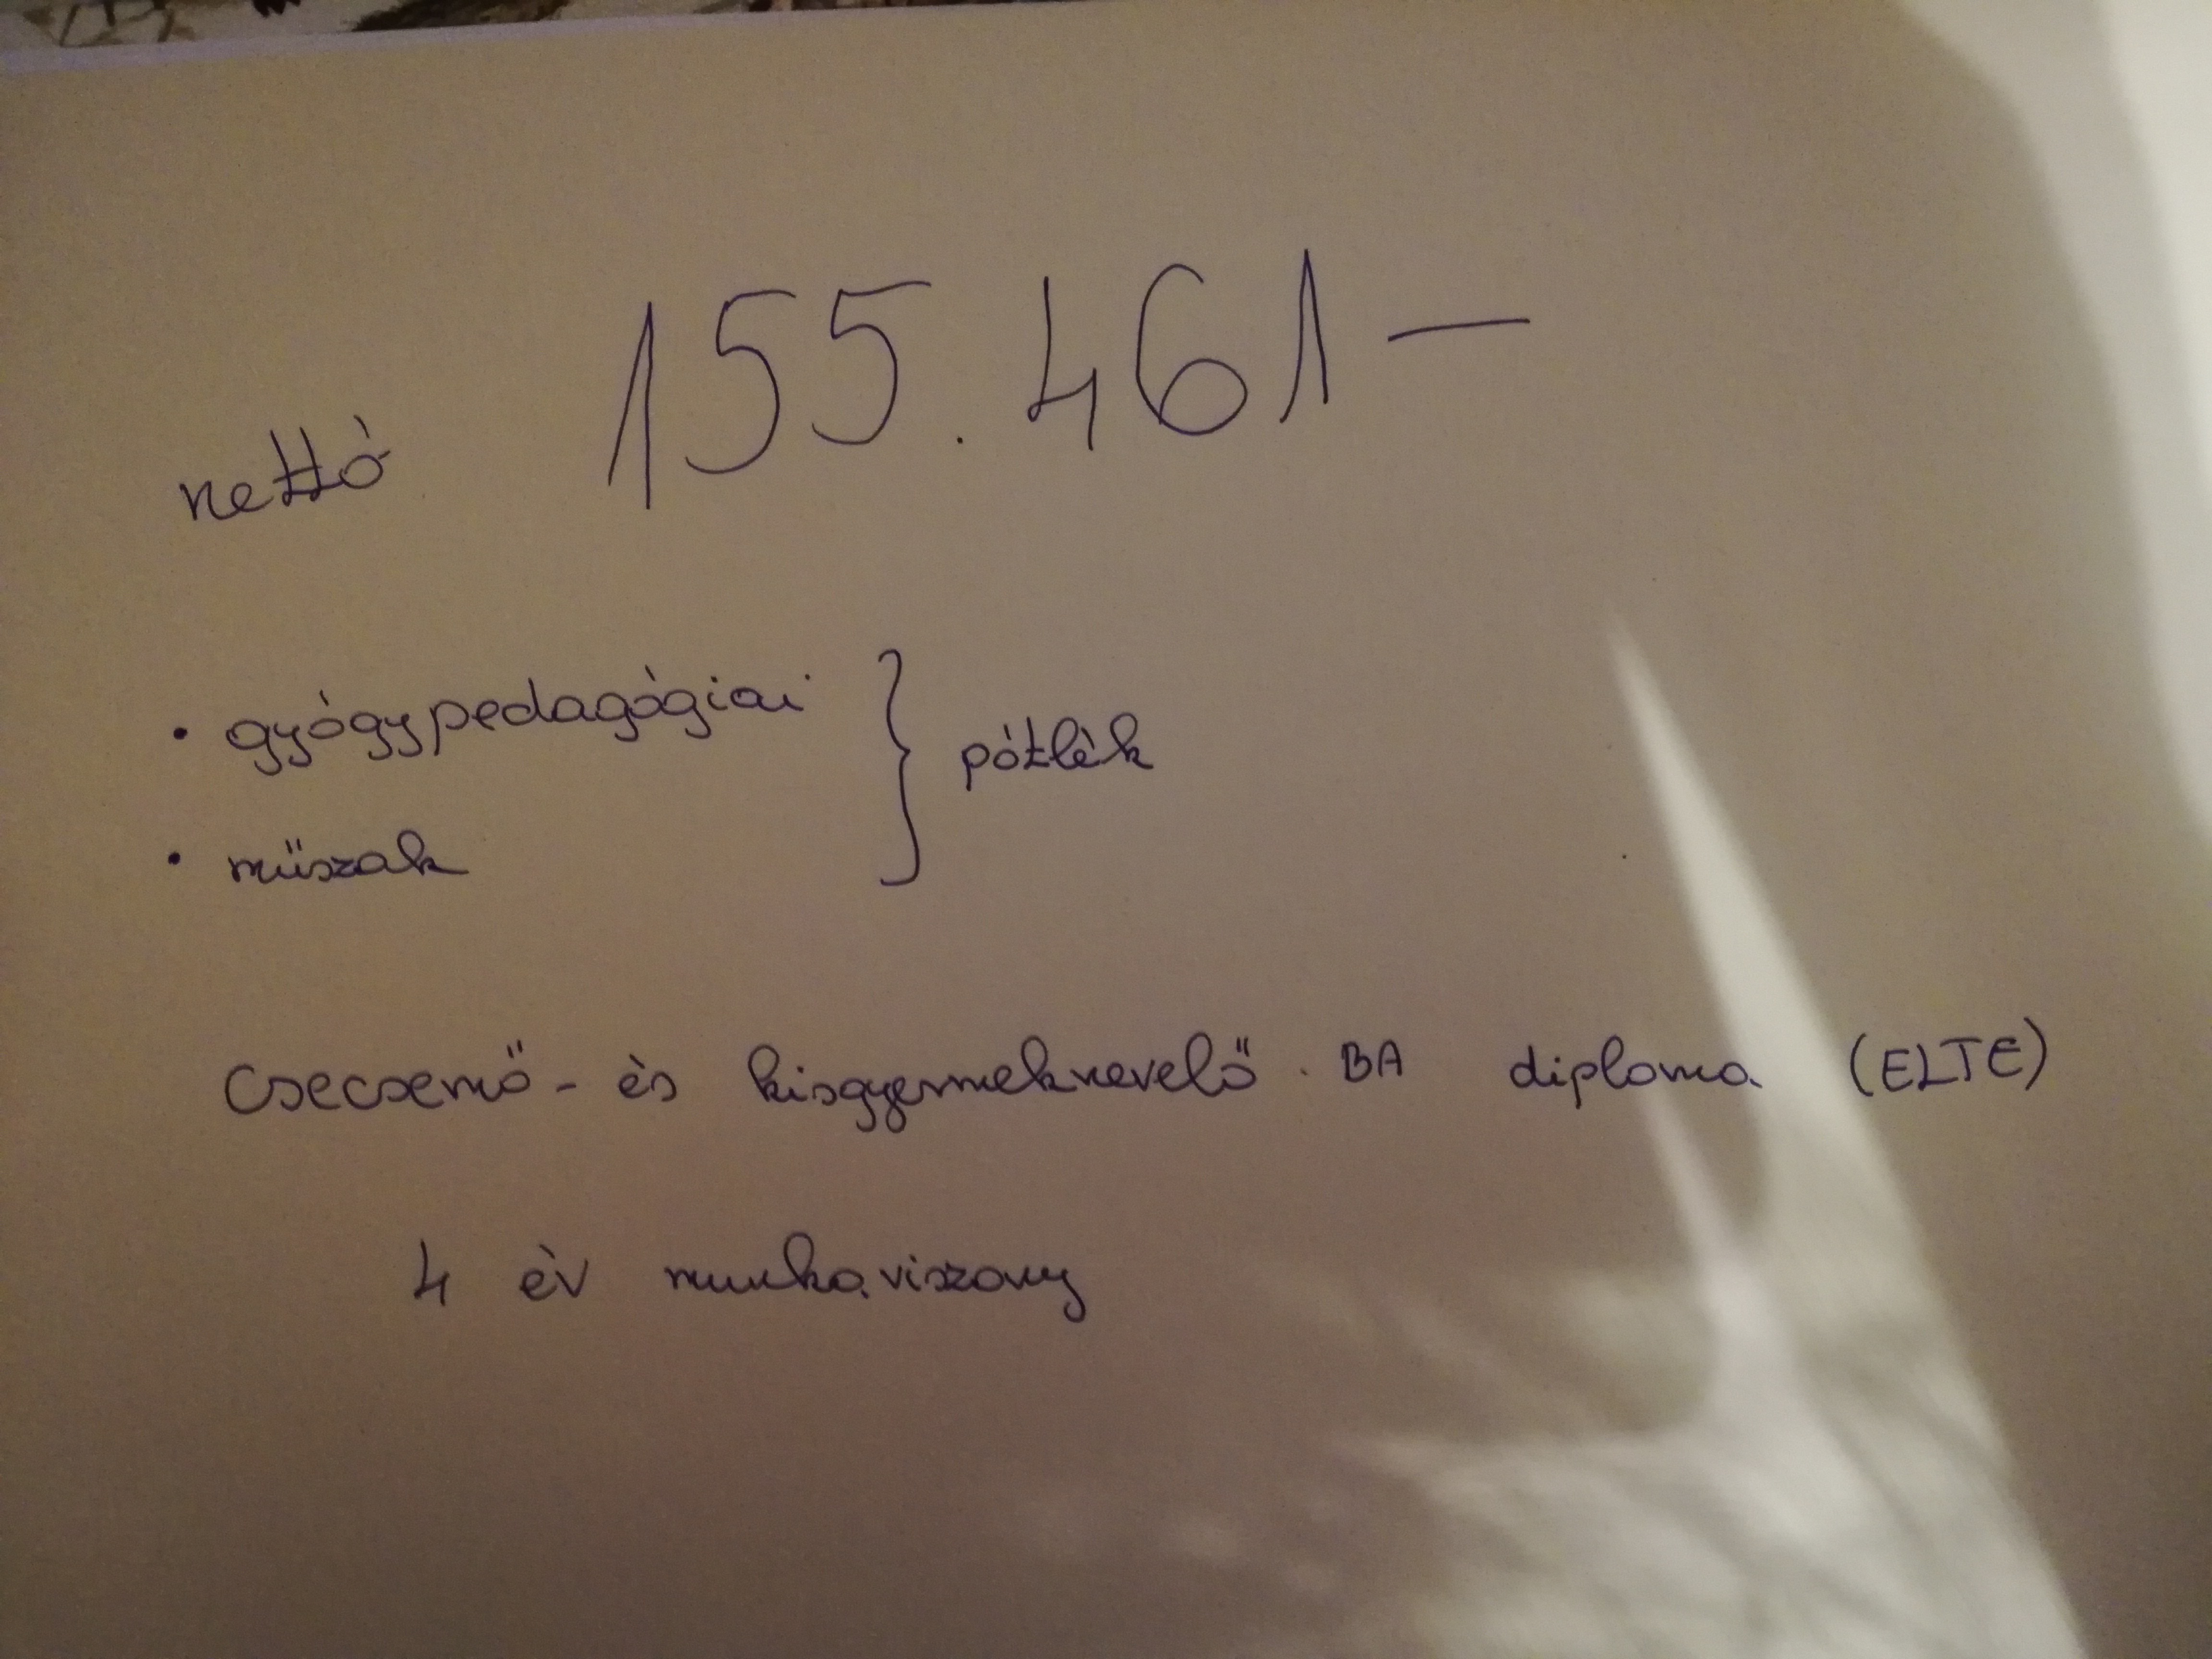 nettó 155.461-
• gyógypedagógiai
• műszak
} pótlék
Csecsemő- és kisgyermeknevelő BA diploma (ELTE)
4 év munkaviszony